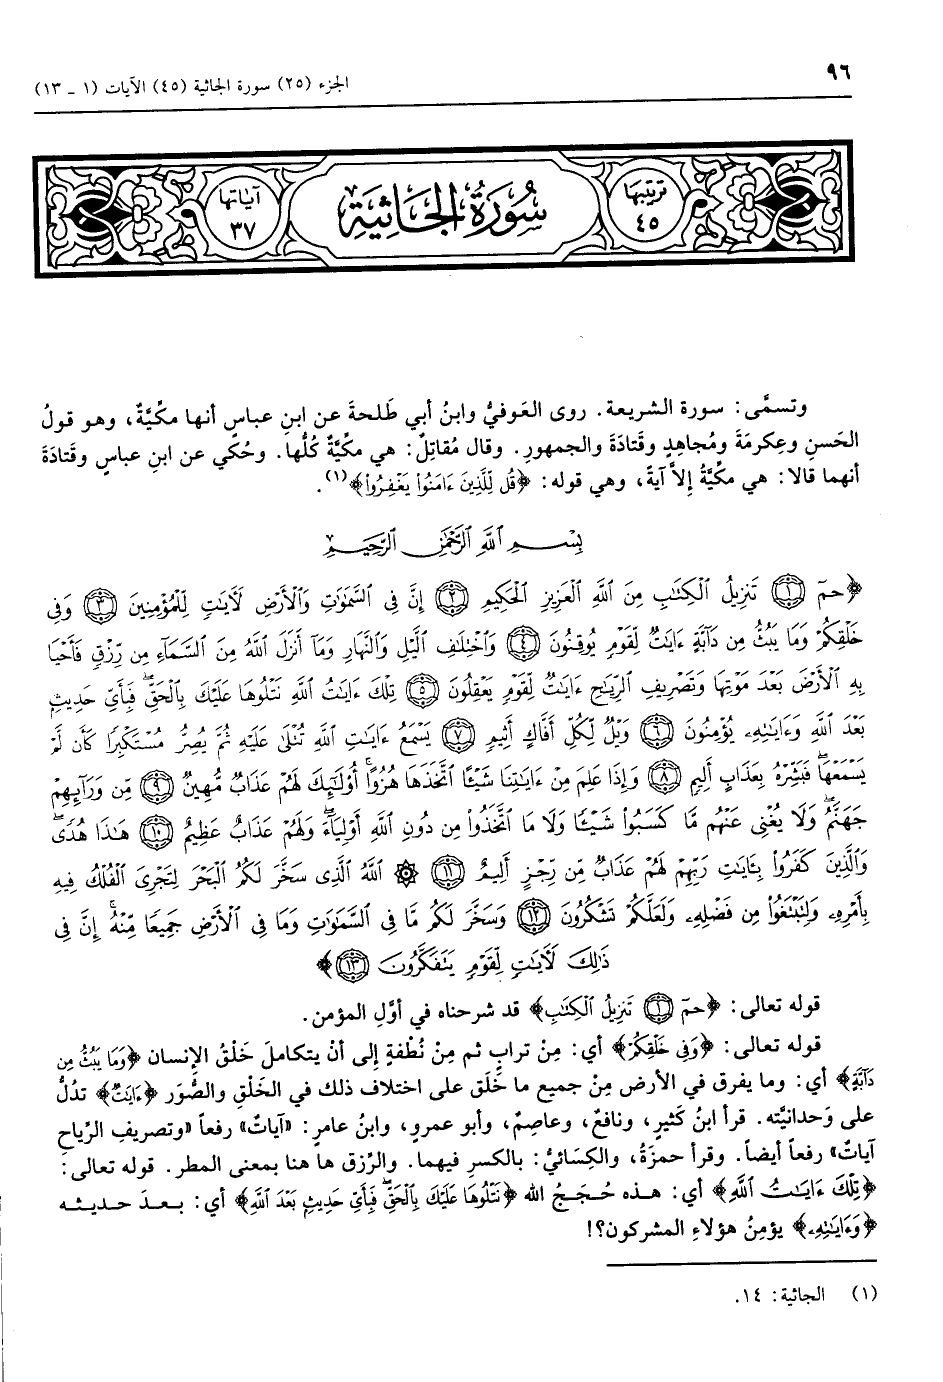 ٩٦
الجزء (٢٥) سورة الجاثية (٤٥) الآيات (١ ـ ١٣)
ترتيبها ٤٥ سُورَةُ الجَاثِيَةِ آياتها ٣٧
وتسمَّى: سورة الشريعة. روى العَوفيُّ وابنُ أبي طَلحةَ عن ابنِ عباسٍ أنها مكيَّةٌ، وهو قولُ
الحَسنِ وعِكرمَةَ ومُجاهدٍ وقتادَةَ والجمهورِ. وقال مُقاتِلٌ: هي مكيَّةٌ كُلُّها. وحُكي عن ابنِ عباسٍ وقتادَةَ
أنهما قالا: هي مكيَّةٌ إلاَّ آيةً، وهي قوله: ﴿قُل لِّلَّذِينَ ءَامَنُواْ يَغْفِرُواْ﴾(١).
بِسْمِ ٱللَّهِ ٱلرَّحْمَٰنِ ٱلرَّحِيمِ
﴿حمٓ ۝١ تَنزِيلُ ٱلْكِتَٰبِ مِنَ ٱللَّهِ ٱلْعَزِيزِ ٱلْحَكِيمِ ۝٢ إِنَّ فِى ٱلسَّمَٰوَٰتِ وَٱلْأَرْضِ لَأَيَٰتٍ لِّلْمُؤْمِنِينَ ۝٣ وَفِى
خَلْقِكُمْ وَمَا يَبُثُّ مِن دَآبَّةٍ ءَايَٰتٌ لِّقَوْمٍ يُوقِنُونَ ۝٤ وَٱخْتِلَٰفِ ٱلَّيْلِ وَٱلنَّهَارِ وَمَآ أَنزَلَ ٱللَّهُ مِنَ ٱلسَّمَآءِ مِن رِّزْقٍ فَأَحْيَا
بِهِ ٱلْأَرْضَ بَعْدَ مَوْتِهَا وَتَصْرِيفِ ٱلرِّيَٰحِ ءَايَٰتٌ لِّقَوْمٍ يَعْقِلُونَ ۝٥ تِلْكَ ءَايَٰتُ ٱللَّهِ نَتْلُوهَا عَلَيْكَ بِٱلْحَقِّ ۖ فَبِأَىِّ حَدِيثٍۭ
بَعْدَ ٱللَّهِ وَءَايَٰتِهِۦ يُؤْمِنُونَ ۝٦ وَيْلٌ لِّكُلِّ أَفَّاكٍ أَثِيمٍ ۝٧ يَسْمَعُ ءَايَٰتِ ٱللَّهِ تُتْلَىٰ عَلَيْهِ ثُمَّ يُصِرُّ مُسْتَكْبِرًا كَأَن لَّمْ
يَسْمَعْهَا ۖ فَبَشِّرْهُ بِعَذَابٍ أَلِيمٍ ۝٨ وَإِذَا عَلِمَ مِنْ ءَايَٰتِنَا شَيْـًٔا ٱتَّخَذَهَا هُزُوًا ۚ أُوْلَٰٓئِكَ لَهُمْ عَذَابٌ مُّهِينٌ ۝٩ مِّن وَرَآئِهِمْ
جَهَنَّمُ ۖ وَلَا يُغْنِى عَنْهُم مَّا كَسَبُواْ شَيْـًٔا وَلَا مَا ٱتَّخَذُواْ مِن دُونِ ٱللَّهِ أَوْلِيَآءَ ۖ وَلَهُمْ عَذَابٌ عَظِيمٌ ۝١٠ هَٰذَا هُدًى ۖ
وَٱلَّذِينَ كَفَرُواْ بِـَٔايَٰتِ رَبِّهِمْ لَهُمْ عَذَابٌ مِّن رِّجْزٍ أَلِيمٌ ۝١١ ۞ ٱللَّهُ ٱلَّذِى سَخَّرَ لَكُمُ ٱلْبَحْرَ لِتَجْرِىَ ٱلْفُلْكُ فِيهِ
بِأَمْرِهِۦ وَلِتَبْتَغُواْ مِن فَضْلِهِۦ وَلَعَلَّكُمْ تَشْكُرُونَ ۝١٢ وَسَخَّرَ لَكُم مَّا فِى ٱلسَّمَٰوَٰتِ وَمَا فِى ٱلْأَرْضِ جَمِيعًا مِّنْهُ ۚ إِنَّ فِى
ذَٰلِكَ لَأَيَٰتٍ لِّقَوْمٍ يَتَفَكَّرُونَ ۝١٣﴾
قوله تعالى: ﴿حمٓ ۝١ تَنزِيلُ ٱلْكِتَٰبِ﴾ قد شرحناه في أوَّلِ المؤمن.
قوله تعالى: ﴿وَفِى خَلْقِكُمْ﴾ أي: مِنْ ترابٍ ثم مِنْ نُطْفةٍ إلى أنْ يتكاملَ خَلْقُ الإنسان ﴿وَمَا يَبُثُّ مِن
دَآبَّةٍ﴾ أي: وما يفرق في الأرض مِنْ جميع ما خَلَق على اختلاف ذلك في الخَلْقِ والصُّوَر ﴿ءَايَٰتٌ﴾ تدُلُّ
على وَحدانيَّته. قرأ ابنُ كَثيرٍ، ونافعٌ، وعاصِمٌ، وأبو عمرٍو، وابنُ عامرٍ: «آياتٌ» رفعاً «وتصريفِ الرِّياحِ
آياتٌ» رفعاً أيضاً. وقرأ حمزَةُ، والكِسَائيُّ: بالكسرِ فيهما. والرِّزق ها هنا بمعنى المطر. قوله تعالى:
﴿تِلْكَ ءَايَٰتُ ٱللَّهِ﴾ أي: هذه حُجَجُ الله ﴿نَتْلُوهَا عَلَيْكَ بِٱلْحَقِّ ۖ فَبِأَىِّ حَدِيثٍۭ بَعْدَ ٱللَّهِ﴾ أي: بعدَ حديثه
﴿وَءَايَٰتِهِۦ﴾ يؤمِنُ هؤلاءِ المشركون؟!
(١) الجاثية: ١٤.